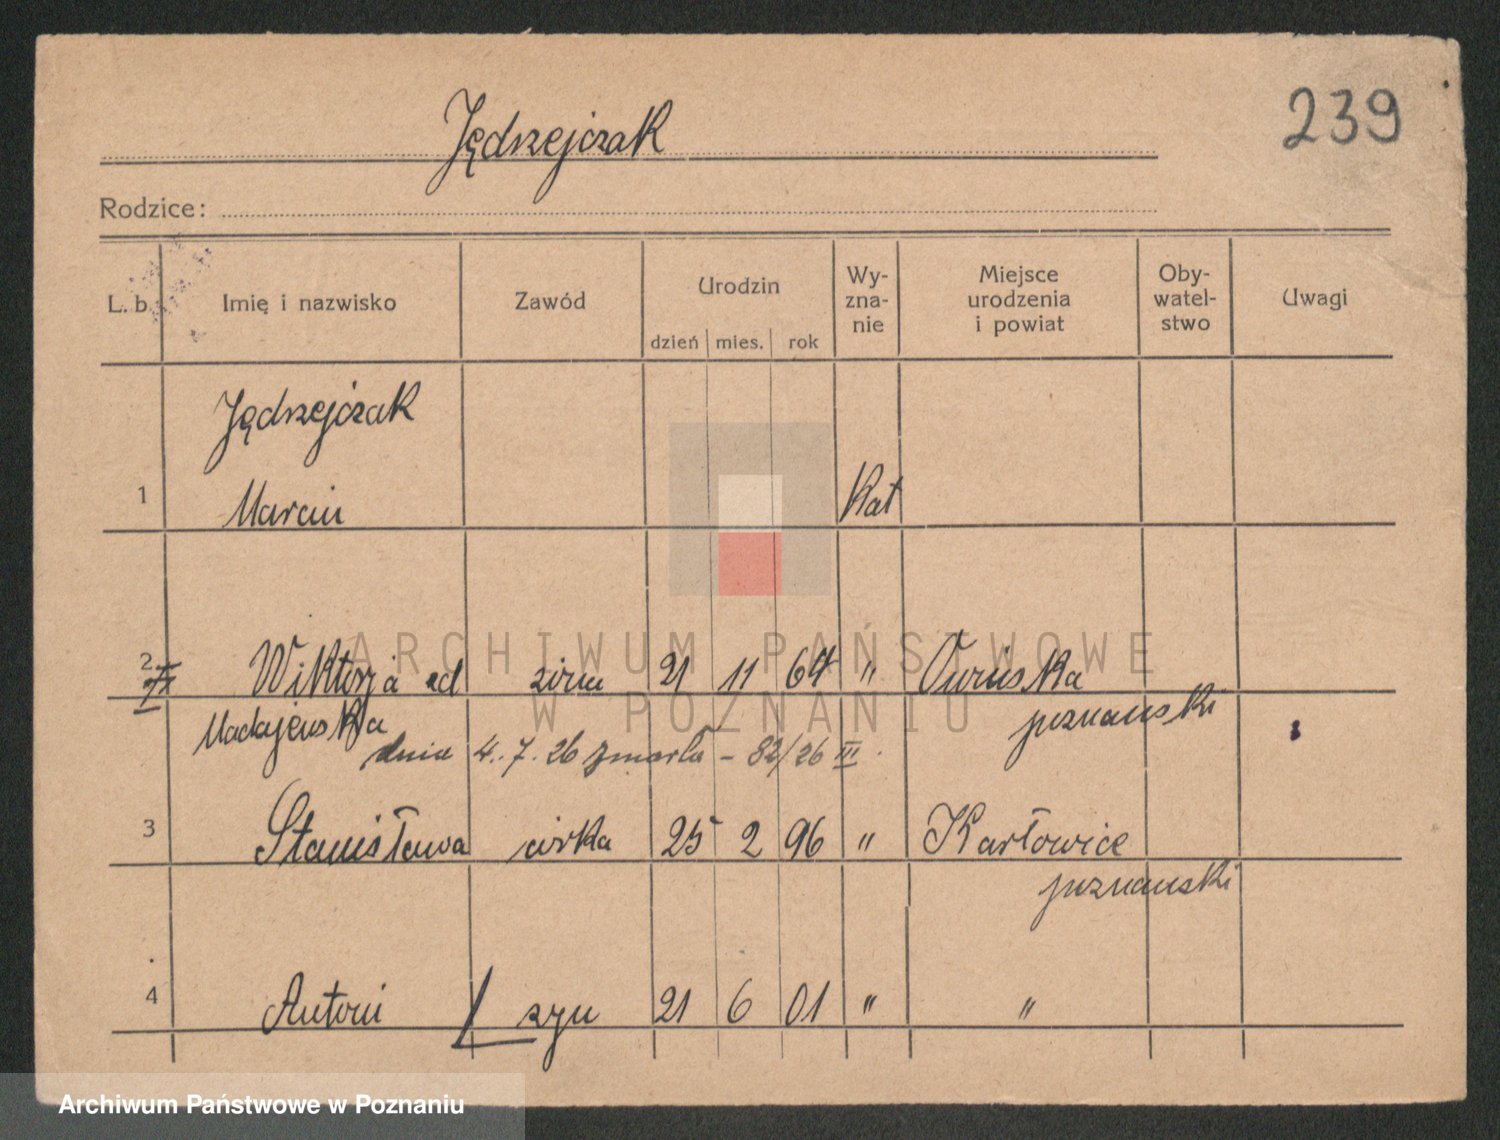 239
Jędrzejczak
Rodzice:
L. b. Imię i nazwisko Zawód Urodzin dzień mies. rok Wy-zna-nie Miejsce urodzenia i powiat Oby-watel-stwo Uwagi
Jędrzejczak
1 Marcin Kat
2 Wiktorja zd żona 21 11 64 " Owińska
Madajewska poznański
dnia 4. 7. 26 zmarła – 82/26 III.
3 Stanisława córka 25 2 96 " Karłowice
poznański
4 Antoni syn 21 6 01 " "
ARCHIWUM PAŃSTWOWE
W POZNANIU
Archiwum Państwowe w Poznaniu